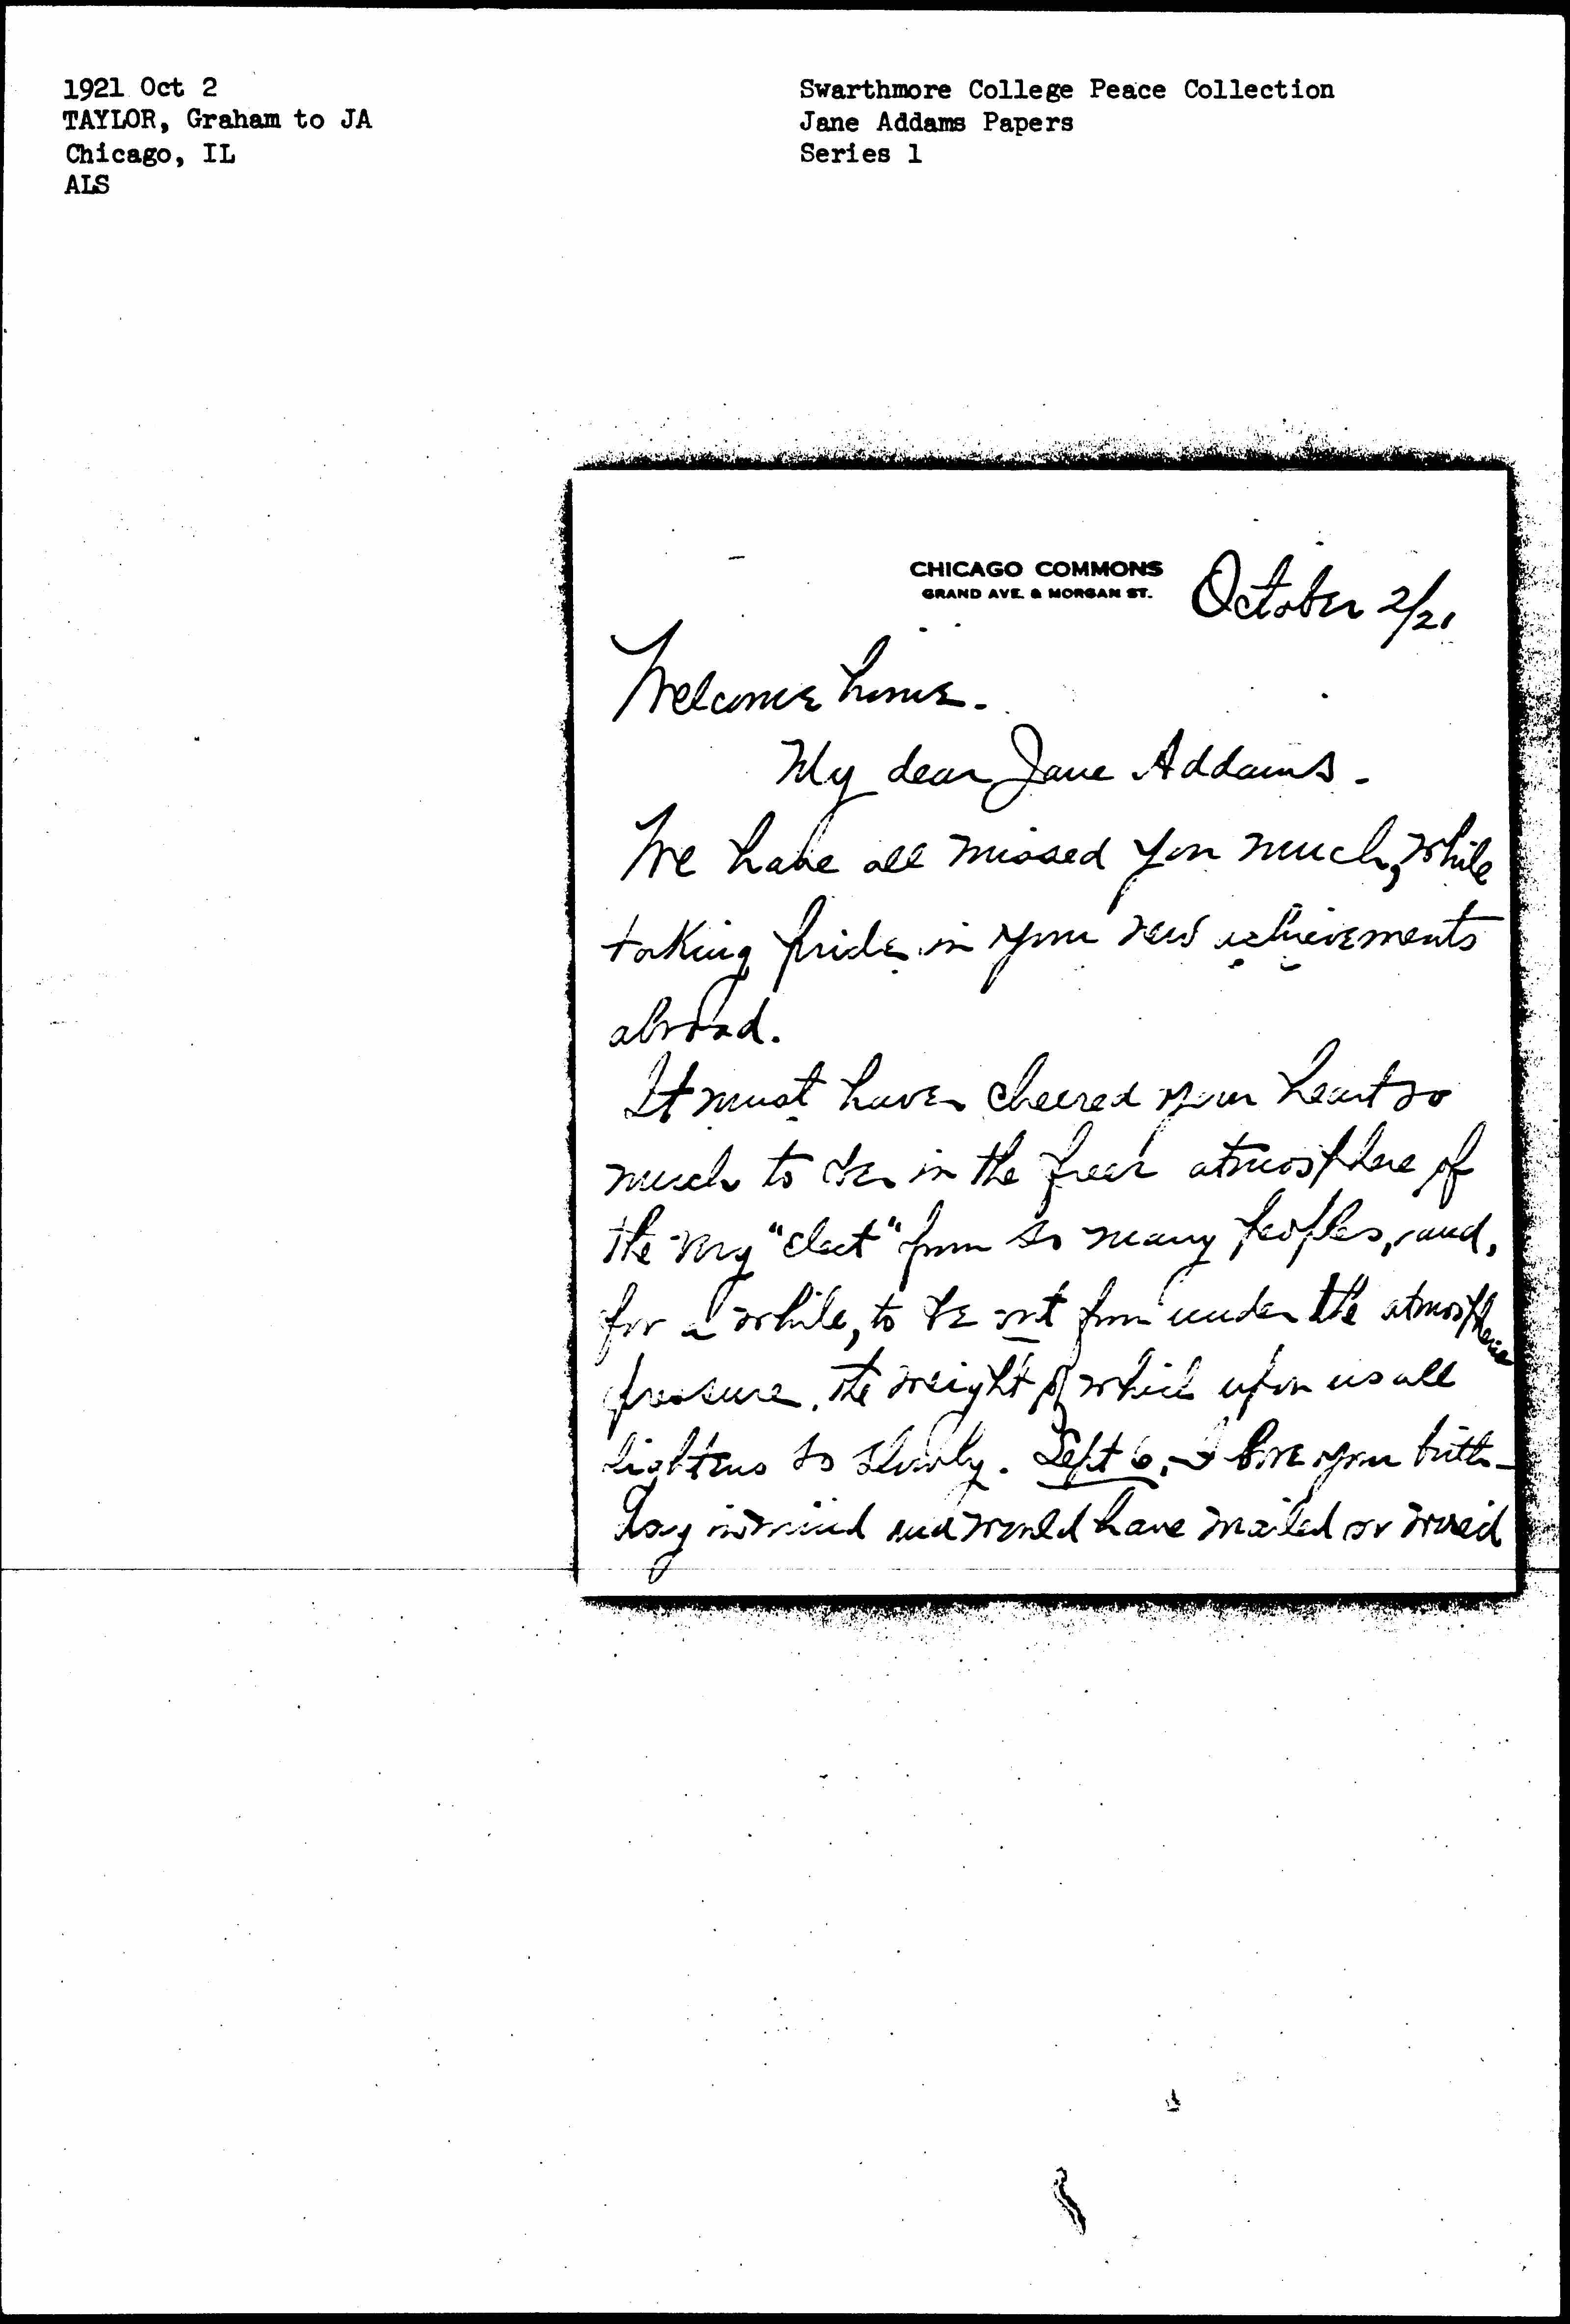 1921 Oct 2
TAYLOR, Graham to JA
Chicago, IL
ALS
Swarthmore College Peace Collection
Jane Addams Papers
Series 1
CHICAGO COMMONS
GRAND AVE. & MORGAN ST.
October 2/21
Welcome home.
My dear Jane Addams.
We have all missed you much, while
taking pride in your new achievements
abroad.
It must have cheered your heart so
much to be in the freer atmosphere of
the very "elect" from so many peoples, and,
for a while, to be out from under the atmosphere
pressure, the weight of which upon us all
lightens so slowly. Sept 6, I bore your birth-
day in mind and would have mailed or wired